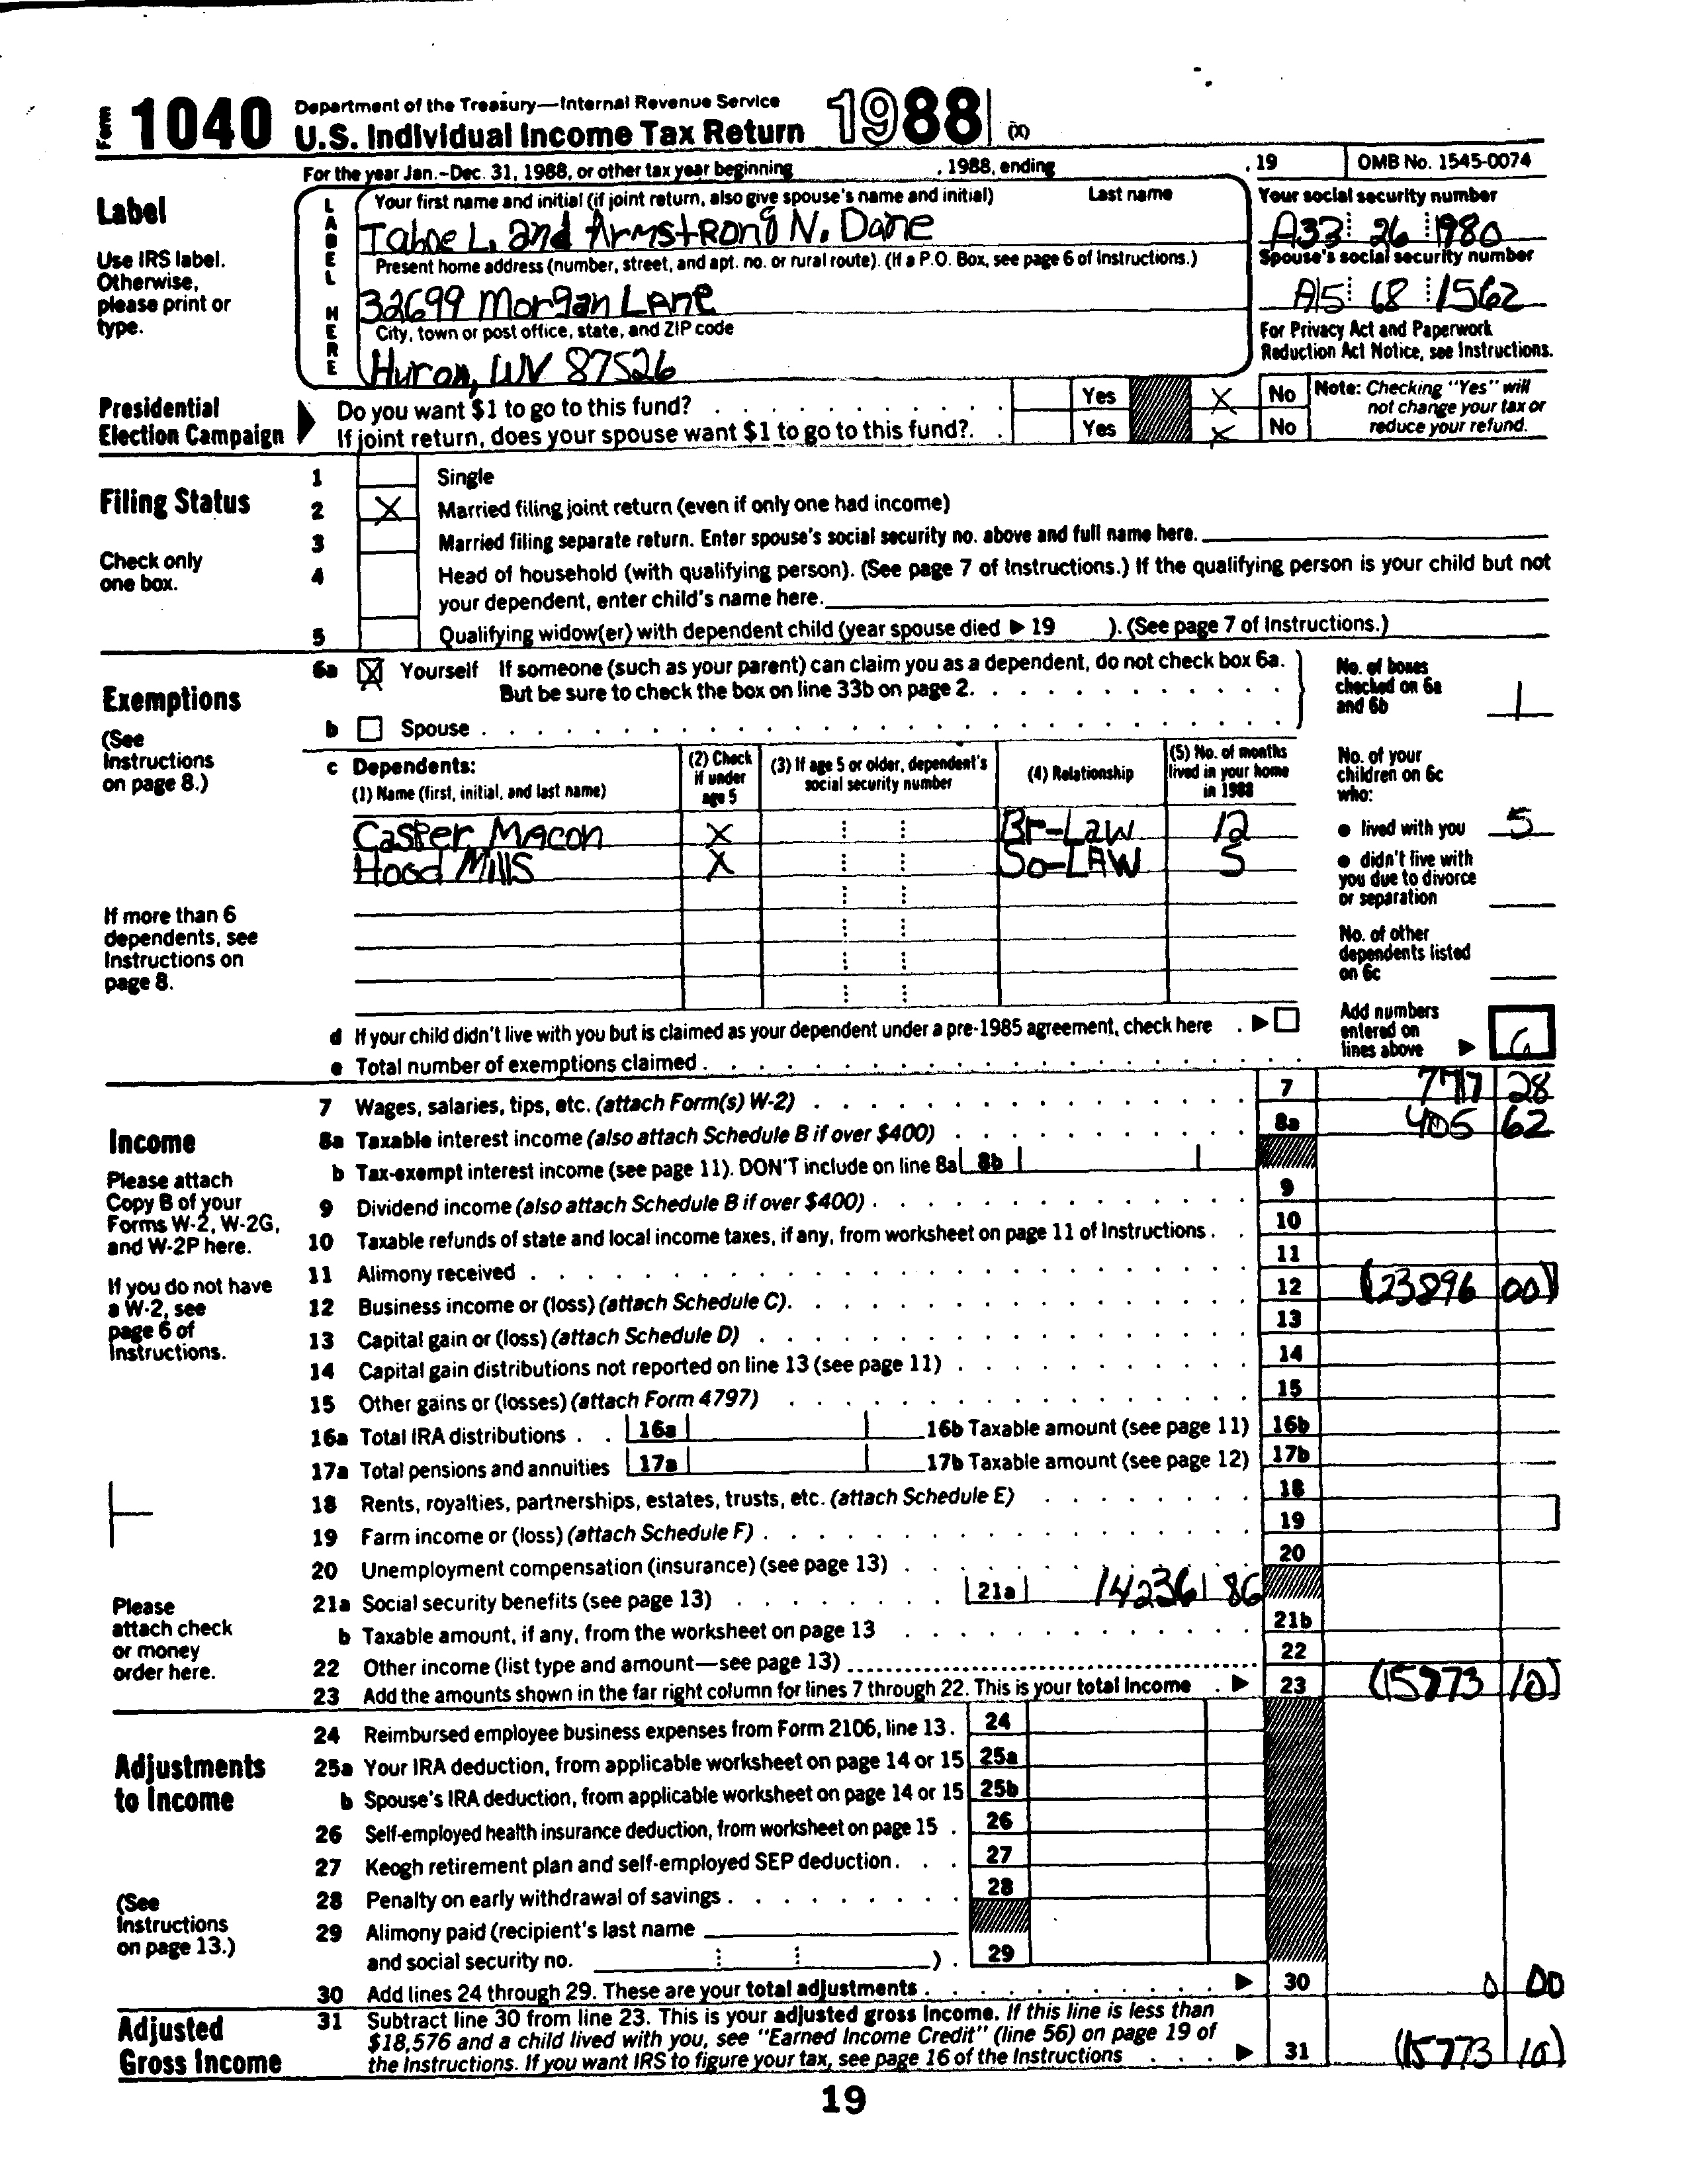 Form 1040 Department of the Treasury—Internal Revenue Service
U.S. Individual Income Tax Return 1988 (X)
For the year Jan.-Dec. 31, 1988, or other tax year beginning , 1988, ending , 19 OMB No. 1545-0074
Label
Use IRS label. Otherwise, please print or type.
LABEL HERE
Your first name and initial (if joint return, also give spouse's name and initial) Last name
Tahoe L. and Armstrong N. Dane
Your social security number
A33 26 1980
Present home address (number, street, and apt. no. or rural route). (If a P.O. Box, see page 6 of Instructions.)
32699 Morgan Lane
Spouse's social security number
A15 68 1562
City, town or post office, state, and ZIP code
Huron, WV 87526
For Privacy Act and Paperwork Reduction Act Notice, see Instructions.
Presidential Election Campaign
Do you want $1 to go to this fund? Yes X No
If joint return, does your spouse want $1 to go to this fund?. Yes X No
Note: Checking "Yes" will not change your tax or reduce your refund.
Filing Status
Check only one box.
1 Single
2 X Married filing joint return (even if only one had income)
3 Married filing separate return. Enter spouse's social security no. above and full name here.
4 Head of household (with qualifying person). (See page 7 of Instructions.) If the qualifying person is your child but not
your dependent, enter child's name here.
5 Qualifying widow(er) with dependent child (year spouse died ▶ 19 ). (See page 7 of Instructions.)
Exemptions
(See Instructions on page 8.)
6a X Yourself If someone (such as your parent) can claim you as a dependent, do not check box 6a.
But be sure to check the box on line 33b on page 2.
b Spouse
No. of boxes checked on 6a and 6b 1
c Dependents:
(1) Name (first, initial, and last name)
(2) Check if under age 5
(3) If age 5 or older, dependent's social security number
(4) Relationship
(5) No. of months lived in your home in 1988
Casper Macon X Br-Law 12
Hood Mills X So-LAW 5
No. of your children on 6c who:
● lived with you 5
● didn't live with you due to divorce or separation
No. of other dependents listed on 6c
If more than 6 dependents, see Instructions on page 8.
d If your child didn't live with you but is claimed as your dependent under a pre-1985 agreement, check here ▶
e Total number of exemptions claimed
Add numbers entered on lines above ▶ 6
Income
Please attach Copy B of your Forms W-2, W-2G, and W-2P here.
If you do not have a W-2, see page 6 of Instructions.
Please attach check or money order here.
7 Wages, salaries, tips, etc. (attach Form(s) W-2) 7 7717 28
8a Taxable interest income (also attach Schedule B if over $400) 8a 405 62
b Tax-exempt interest income (see page 11). DON'T include on line 8a 8b
9 Dividend income (also attach Schedule B if over $400) 9
10 Taxable refunds of state and local income taxes, if any, from worksheet on page 11 of Instructions 10
11 Alimony received 11
12 Business income or (loss) (attach Schedule C). 12 (23896 00)
13 Capital gain or (loss) (attach Schedule D) 13
14 Capital gain distributions not reported on line 13 (see page 11) 14
15 Other gains or (losses) (attach Form 4797) 15
16a Total IRA distributions 16a 16b Taxable amount (see page 11) 16b
17a Total pensions and annuities 17a 17b Taxable amount (see page 12) 17b
18 Rents, royalties, partnerships, estates, trusts, etc. (attach Schedule E) 18
19 Farm income or (loss) (attach Schedule F) 19
20 Unemployment compensation (insurance) (see page 13) 20
21a Social security benefits (see page 13) 21a 14236 86
b Taxable amount, if any, from the worksheet on page 13 21b
22 Other income (list type and amount—see page 13) 22
23 Add the amounts shown in the far right column for lines 7 through 22. This is your total income ▶ 23 (15773 10)
Adjustments to Income
(See Instructions on page 13.)
24 Reimbursed employee business expenses from Form 2106, line 13. 24
25a Your IRA deduction, from applicable worksheet on page 14 or 15 25a
b Spouse's IRA deduction, from applicable worksheet on page 14 or 15 25b
26 Self-employed health insurance deduction, from worksheet on page 15 26
27 Keogh retirement plan and self-employed SEP deduction. 27
28 Penalty on early withdrawal of savings 28
29 Alimony paid (recipient's last name
and social security no. ) 29
30 Add lines 24 through 29. These are your total adjustments ▶ 30 0 00
Adjusted Gross Income
31 Subtract line 30 from line 23. This is your adjusted gross income. If this line is less than
$18,576 and a child lived with you, see "Earned Income Credit" (line 56) on page 19 of
the Instructions. If you want IRS to figure your tax, see page 16 of the Instructions ▶ 31 (15773 10)
19